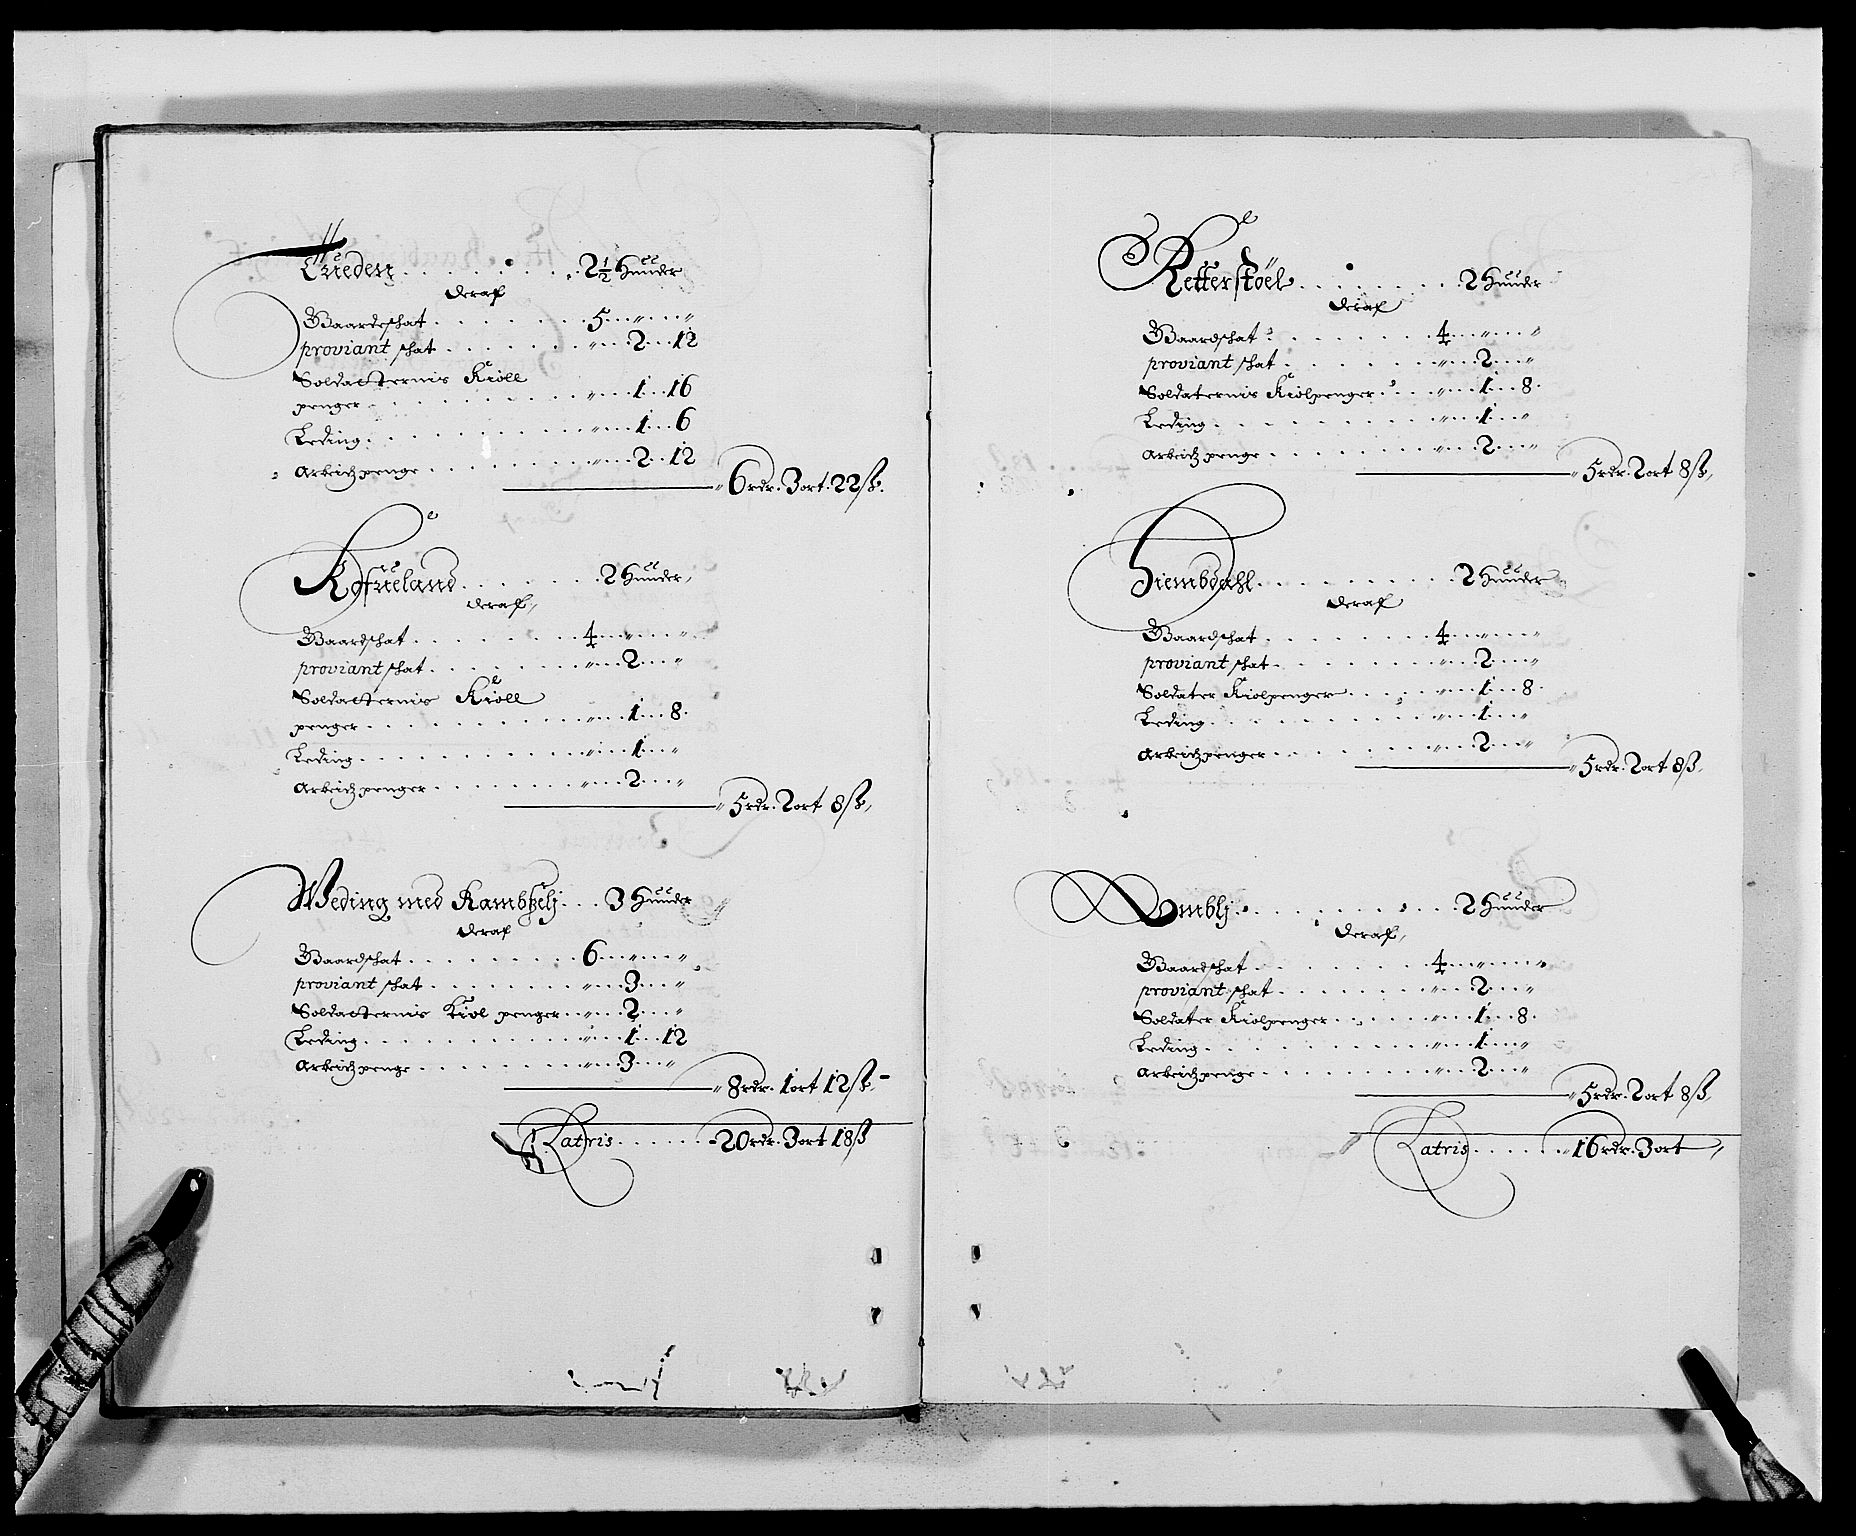 2½ Huuder
deraf
Gaardeschat . . . . . . 5 „ „
proviant schat . . . . . . „ 2 12
Soldatternis Kiöll
penger . . . . . . „ 1 16
Leding . . . . . . „ 1 6
Arbeidz penge . . . . . . „ 2 12
„ 6 rdr. 3 ort. 22 ß.
2 Huuder
deraf
Gaardschat . . . . . . 4 „ „
proviant schat . . . . . . „ 2 „
Soldatternis Kiöll
penger . . . . . . „ 1 8.
Leding . . . . . . „ 1 „
Arbeidz penger . . . . . . „ 2 „
„ 5 rdr. 2 ort 8 ß,
Weding med Kambßelj . . . 3 Huuder
deraf
Gaardschat . . . . . . 6 „ „
proviant schat . . . . . . „ 3 „
Soldatternis Kiöl penger „ 2 „
Leding . . . . . . „ 1 12
Arbeidz penge . . . . . . „ 3 „
„ 8 rdr. 1 ort 12 ß.
Latris . . . . . . 20 rdr. 3 ort 18 ß
Retterstöel . . . . . . 2 Huuder
deraf
Gaardschat . . . . . . 4 „ „
proviant schat . . . . . . „ 2 „
Soldaternis Kiölpenger . . „ 1 8.
Leding . . . . . . „ 1 „
Arbeidz penge . . . . . . „ 2 „
„ 5 rdr. 2 ort 8 ß,
Hiembdahl . . . . . . 2 Huuder
deraf
Gaardschat . . . . . . 4 „ „
proviant schat . . . . . . „ 2 „
Soldater Kiölpenger . . . „ 1 8.
Leding . . . . . . „ 1 „
Arbeidz penger . . . . . . „ 2 „
„ 5 rdr. 2 ort 8 ß,
2 Huuder
deraf,
Gaardschat . . . . . . 4 „ „
proviant schat . . . . . . „ 2 „
Soldater Kiölpenger . . . „ 1 8.
Leding . . . . . . „ 1 „
Arbeidz penge . . . . . . „ 2 „
„ 5 rdr. 2 ort 8 ß,
Latris . . . . . . „ 16 rdr. 3 ort